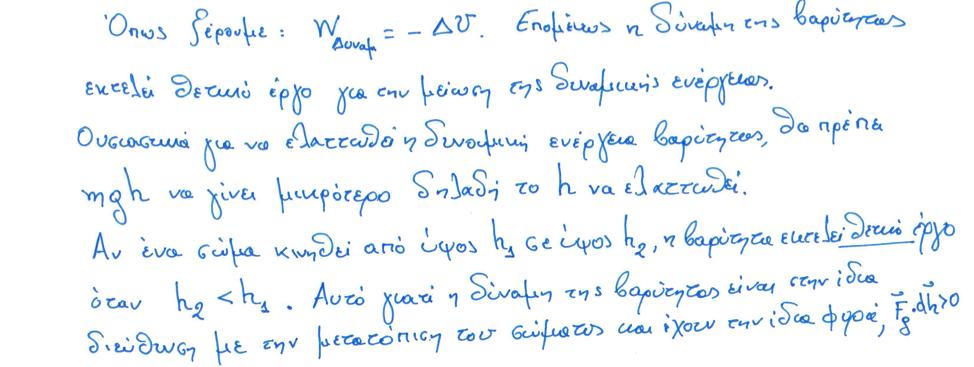 Όπως ξέρουμε : W_Δυναμ = - ΔU. Επομένως η δύναμη της βαρύτητας
εκτελεί θετικό έργο για την μείωση της δυναμικής ενέργειας.
Ουσιαστικά για να ελαττωθεί η δυναμική ενέργεια βαρύτητας, θα πρέπει
mgh να γίνει μικρότερο δηλαδή το h να ελαττωθεί.
Αν ένα σώμα κινηθεί από ύψος h₁ σε ύψος h₂, η βαρύτητα εκτελεί θετικό έργο
όταν h₂ < h₁. Αυτό γιατί η δύναμη της βαρύτητας είναι στην ίδια
διεύθυνση με την μετατόπιση του σώματος και έχουν την ίδια φορά, F⃗_g·dh⃗>0